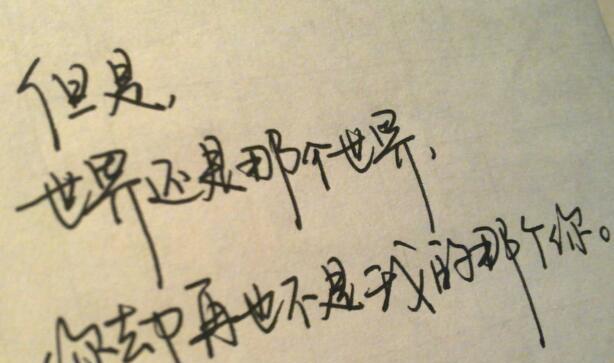 但是,
世界还是那个世界,
你却再也不是我的那个你。